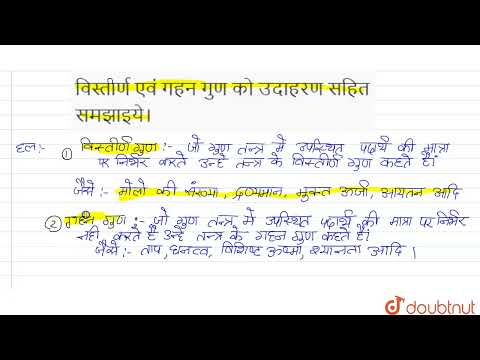 विस्तीर्ण एवं गहन गुण को उदाहरण सहित
समझाइये।
हलः- ① विस्तीर्ण गुण :- जो गुण तन्त्र में उपस्थित पदार्थ की मात्रा
पर निर्भर करते उन्हे तन्त्र के विस्तीर्ण गुण कहते हैं।
जैसे :- मोलो की संख्या, द्रव्यमान, मुक्त ऊर्जा, आयतन आदि
② गहन गुण :- जो गुण तन्त्र में उपस्थित पदार्थ की मात्रा पर निर्भर
नही करते है उन्हे तन्त्र के गहन गुण कहते हैं।
जैसे :- ताप, घनत्व, विशिष्ट ऊष्मा, श्यानता आदि ।
doubtnut